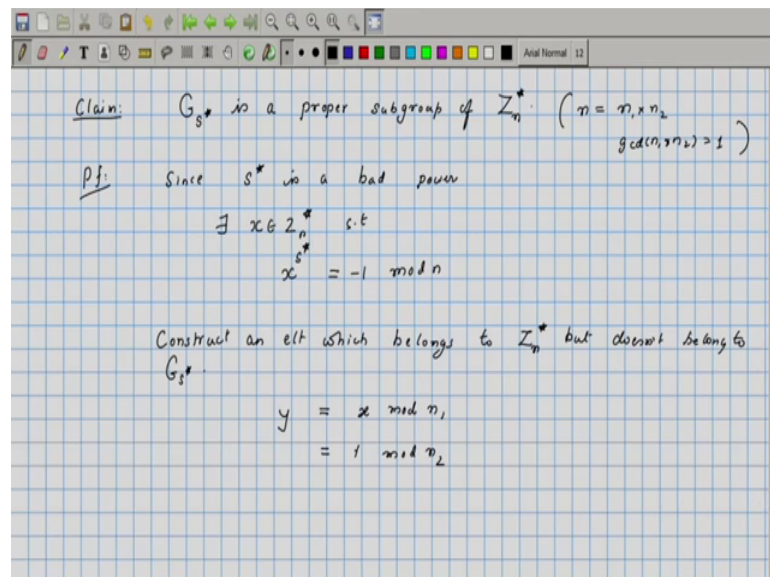 Arial Normal 12
Clain: G_s* is a proper subgroup of Z_n^*. ( n = n_1 × n_2
gcd(n_1, n_2) = 1 )
Pf: Since s* is a bad power
∃ x ∈ Z_n^* s.t
x^{s*} = -1 mod n
Construct an elt which belongs to Z_n^* but doesnot belong to
G_s*.
y = x mod n_1
= 1 mod n_2